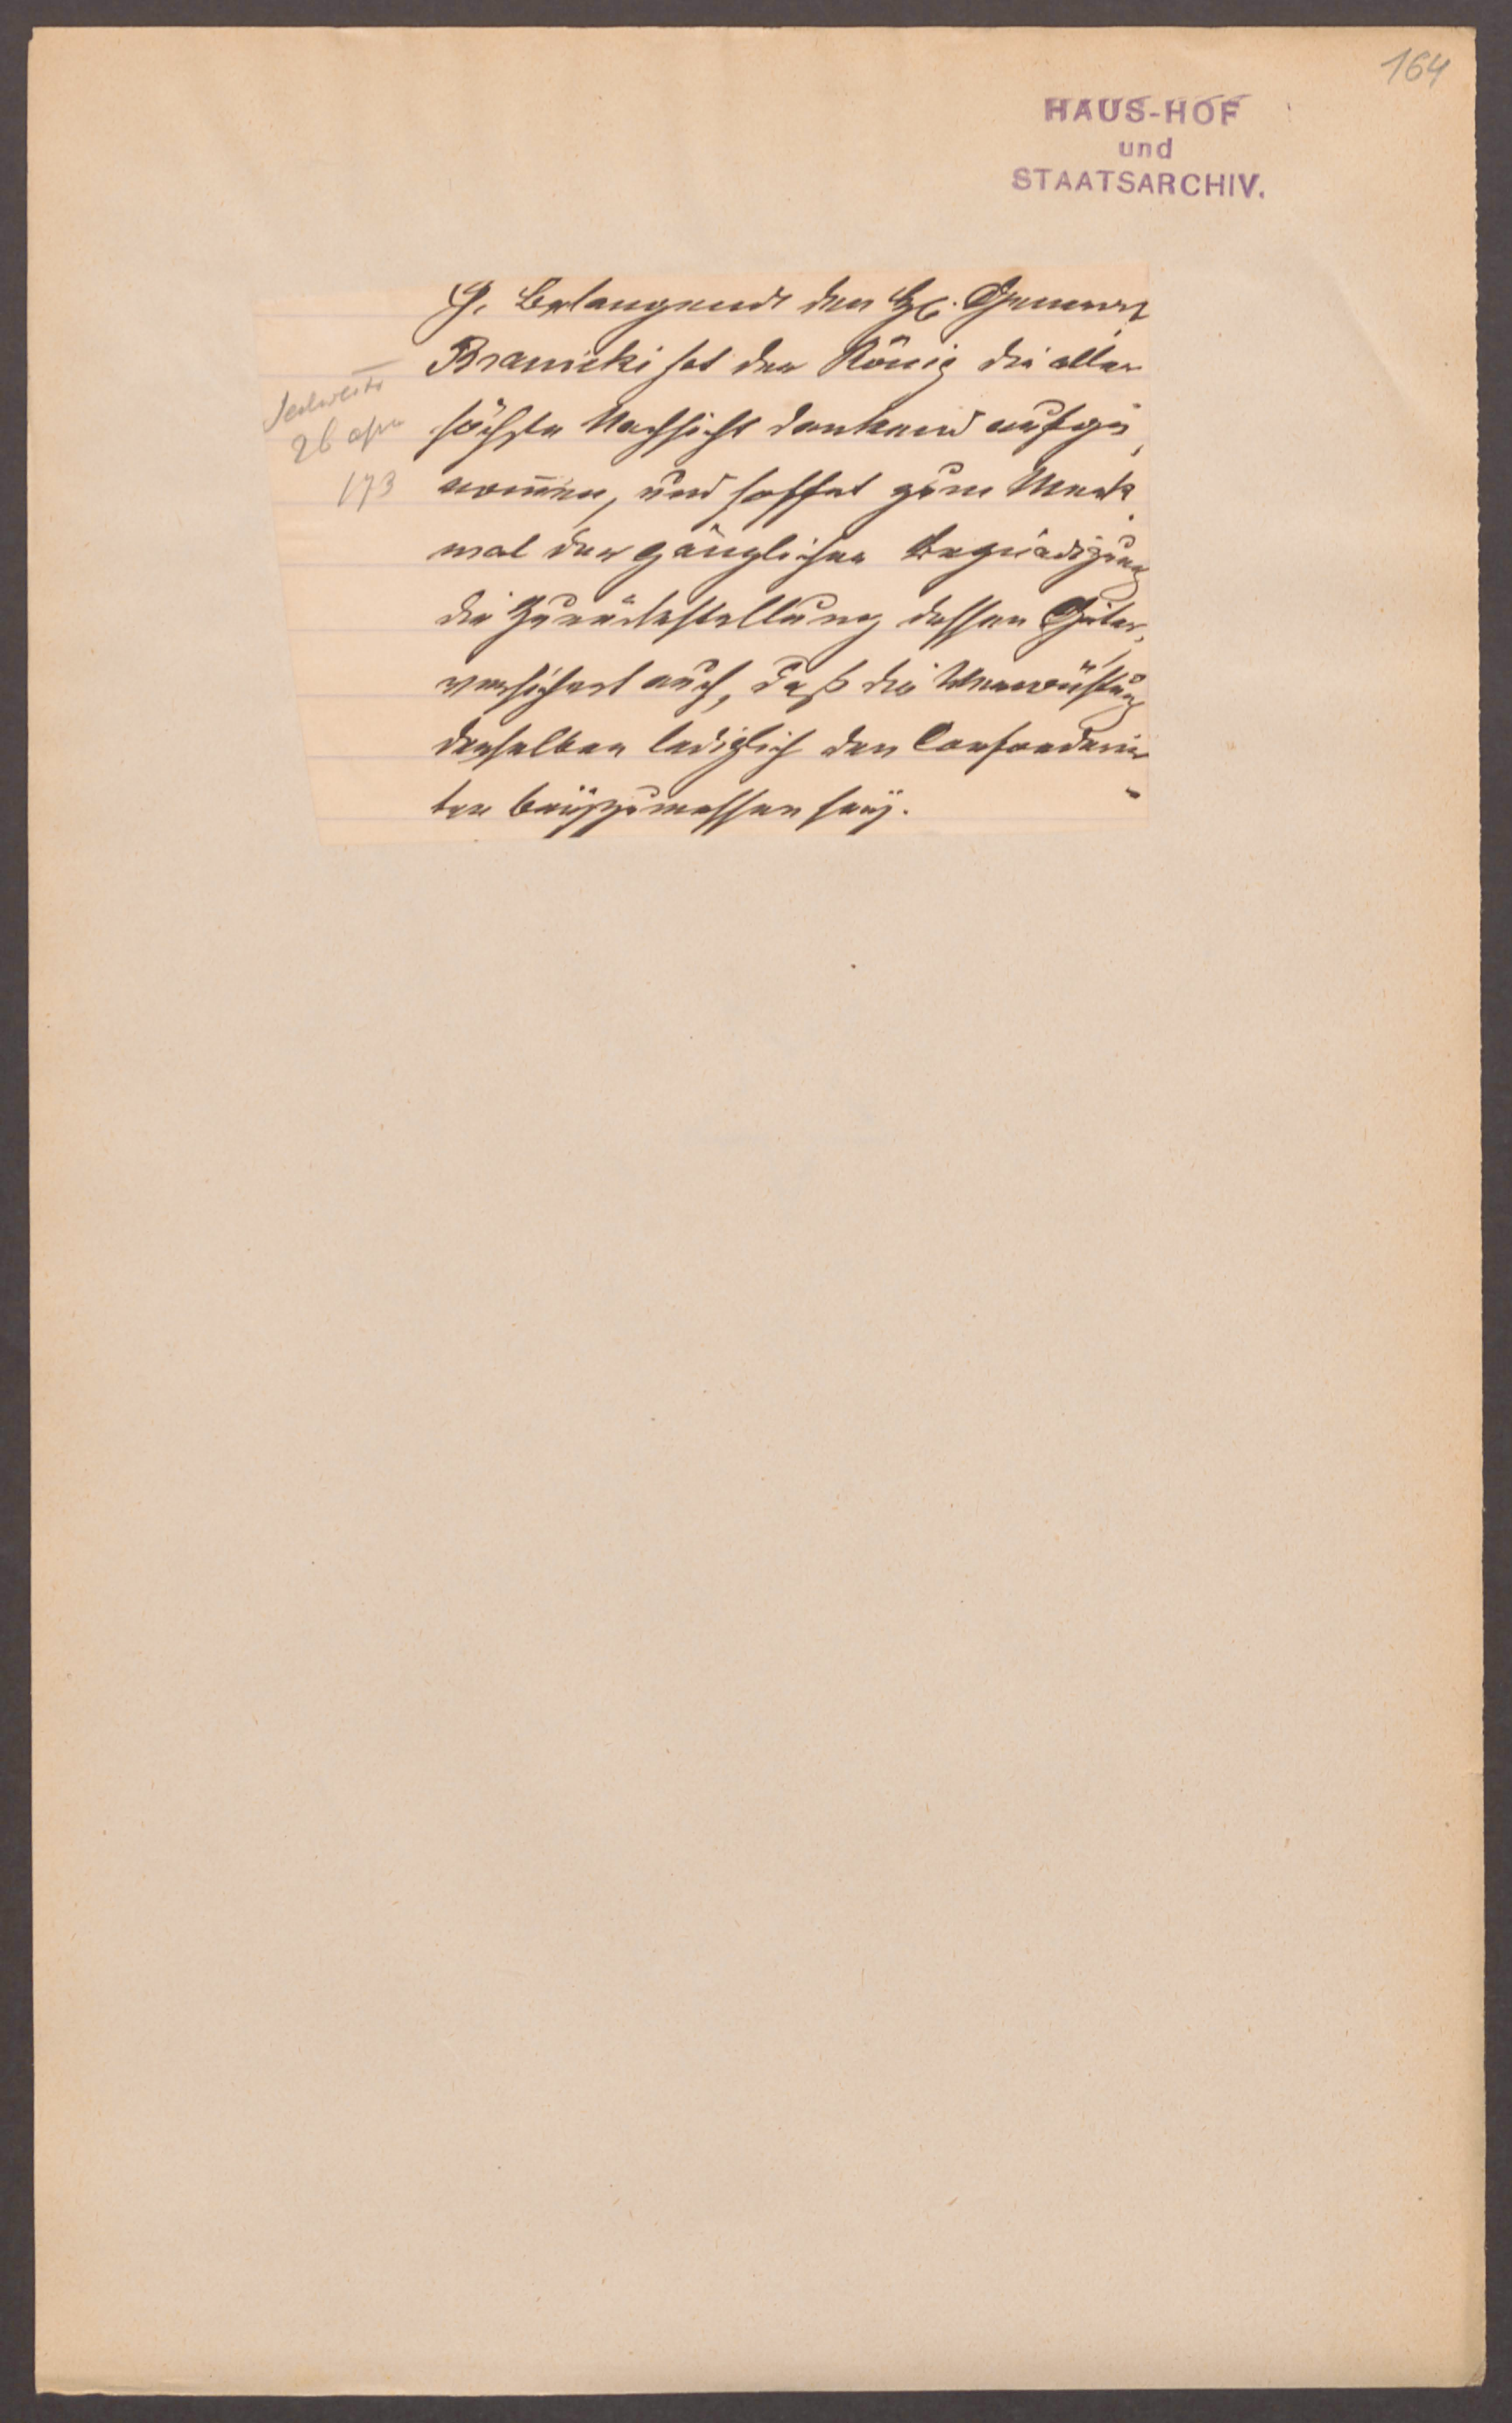 164
HAUS-HOF
und
STAATSARCHIV.
9. Belangende den H. General
Branicki hat der König die aller
höchste Nachsicht dankend aufge,
nom̄en, und hoffet zum Merk,
mal der gänzlichen Begnädigung
die Zurückstellung dessen Güter,
versichert auch, daß die Verwüstung
derselben lediglich den Confoederir
ten beÿzumessen seÿ.
26 apr
173